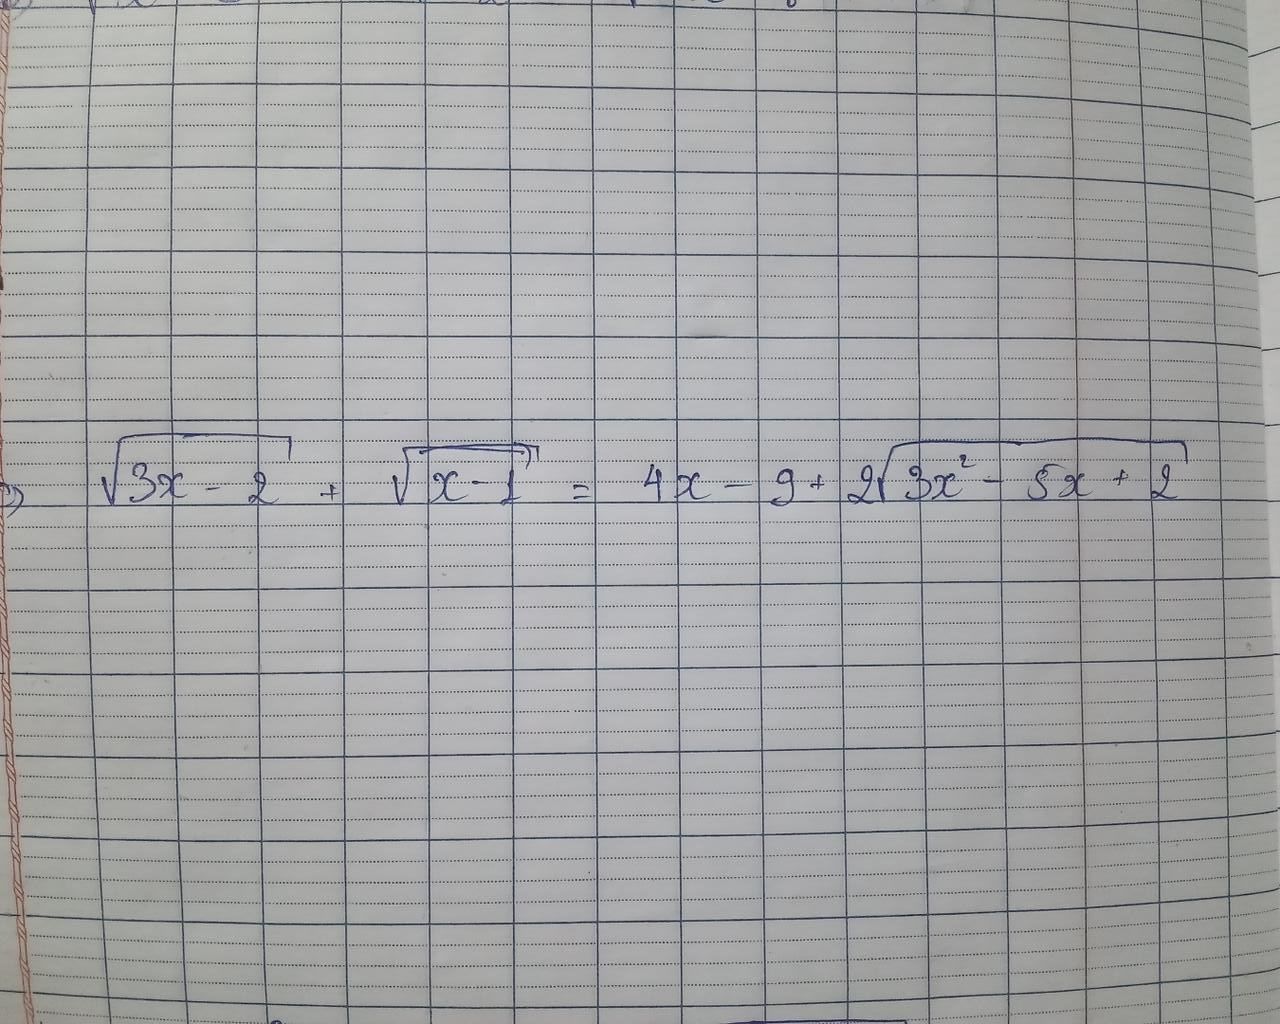 √(3x - 2) + √(x - 1) = 4x - 9 + 2√(3x² - 5x + 2)